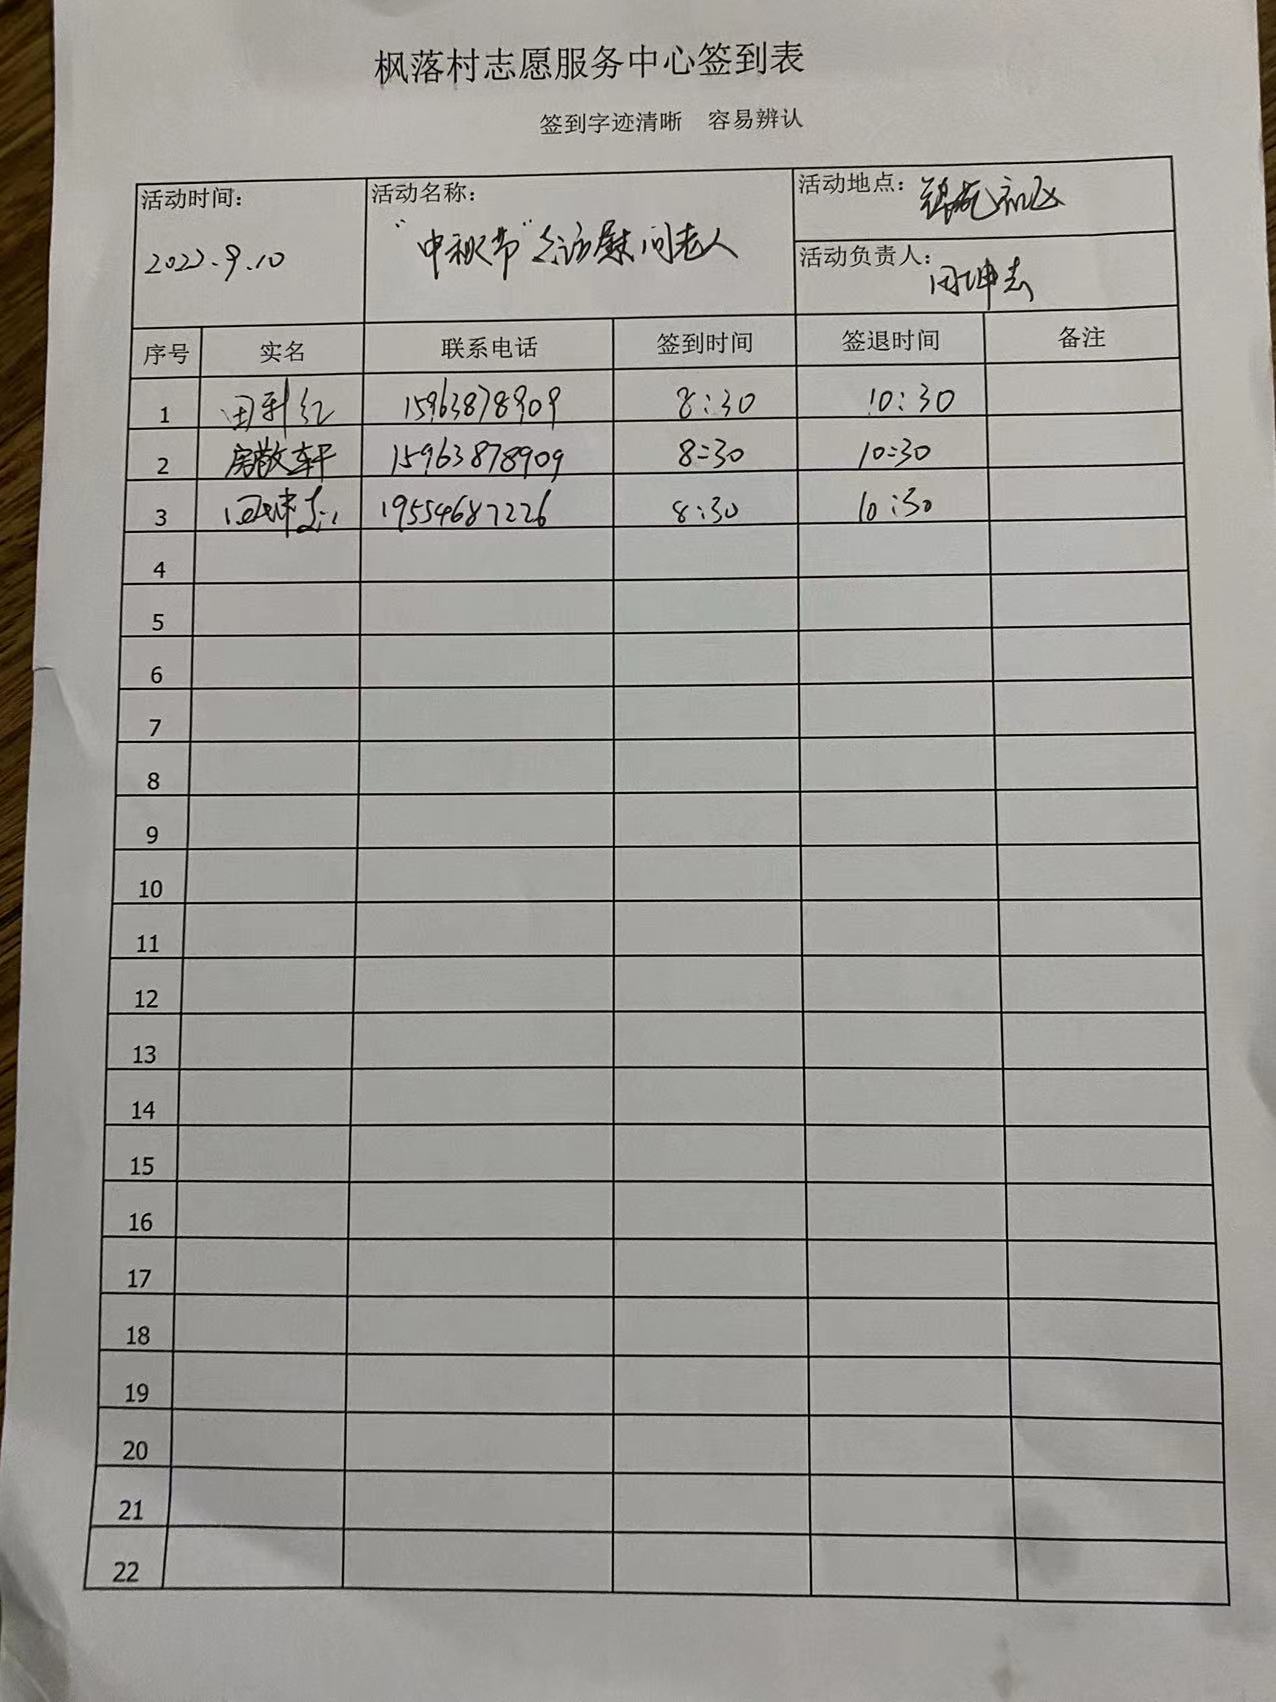 枫落村志愿服务中心签到表
签到字迹清晰 容易辨认
活动时间: 活动名称: 活动地点: 社区
2022.9.10 "中秋节"走访慰问老人 活动负责人: 田坤志
序号 实名 联系电话 签到时间 签退时间 备注
1 田利红 15963878909 8:30 10:30
2 房敬轩 15963878909 8:30 10:30
3 田坤志 19554687226 8:30 10:30
4
5
6
7
8
9
10
11
12
13
14
15
16
17
18
19
20
21
22